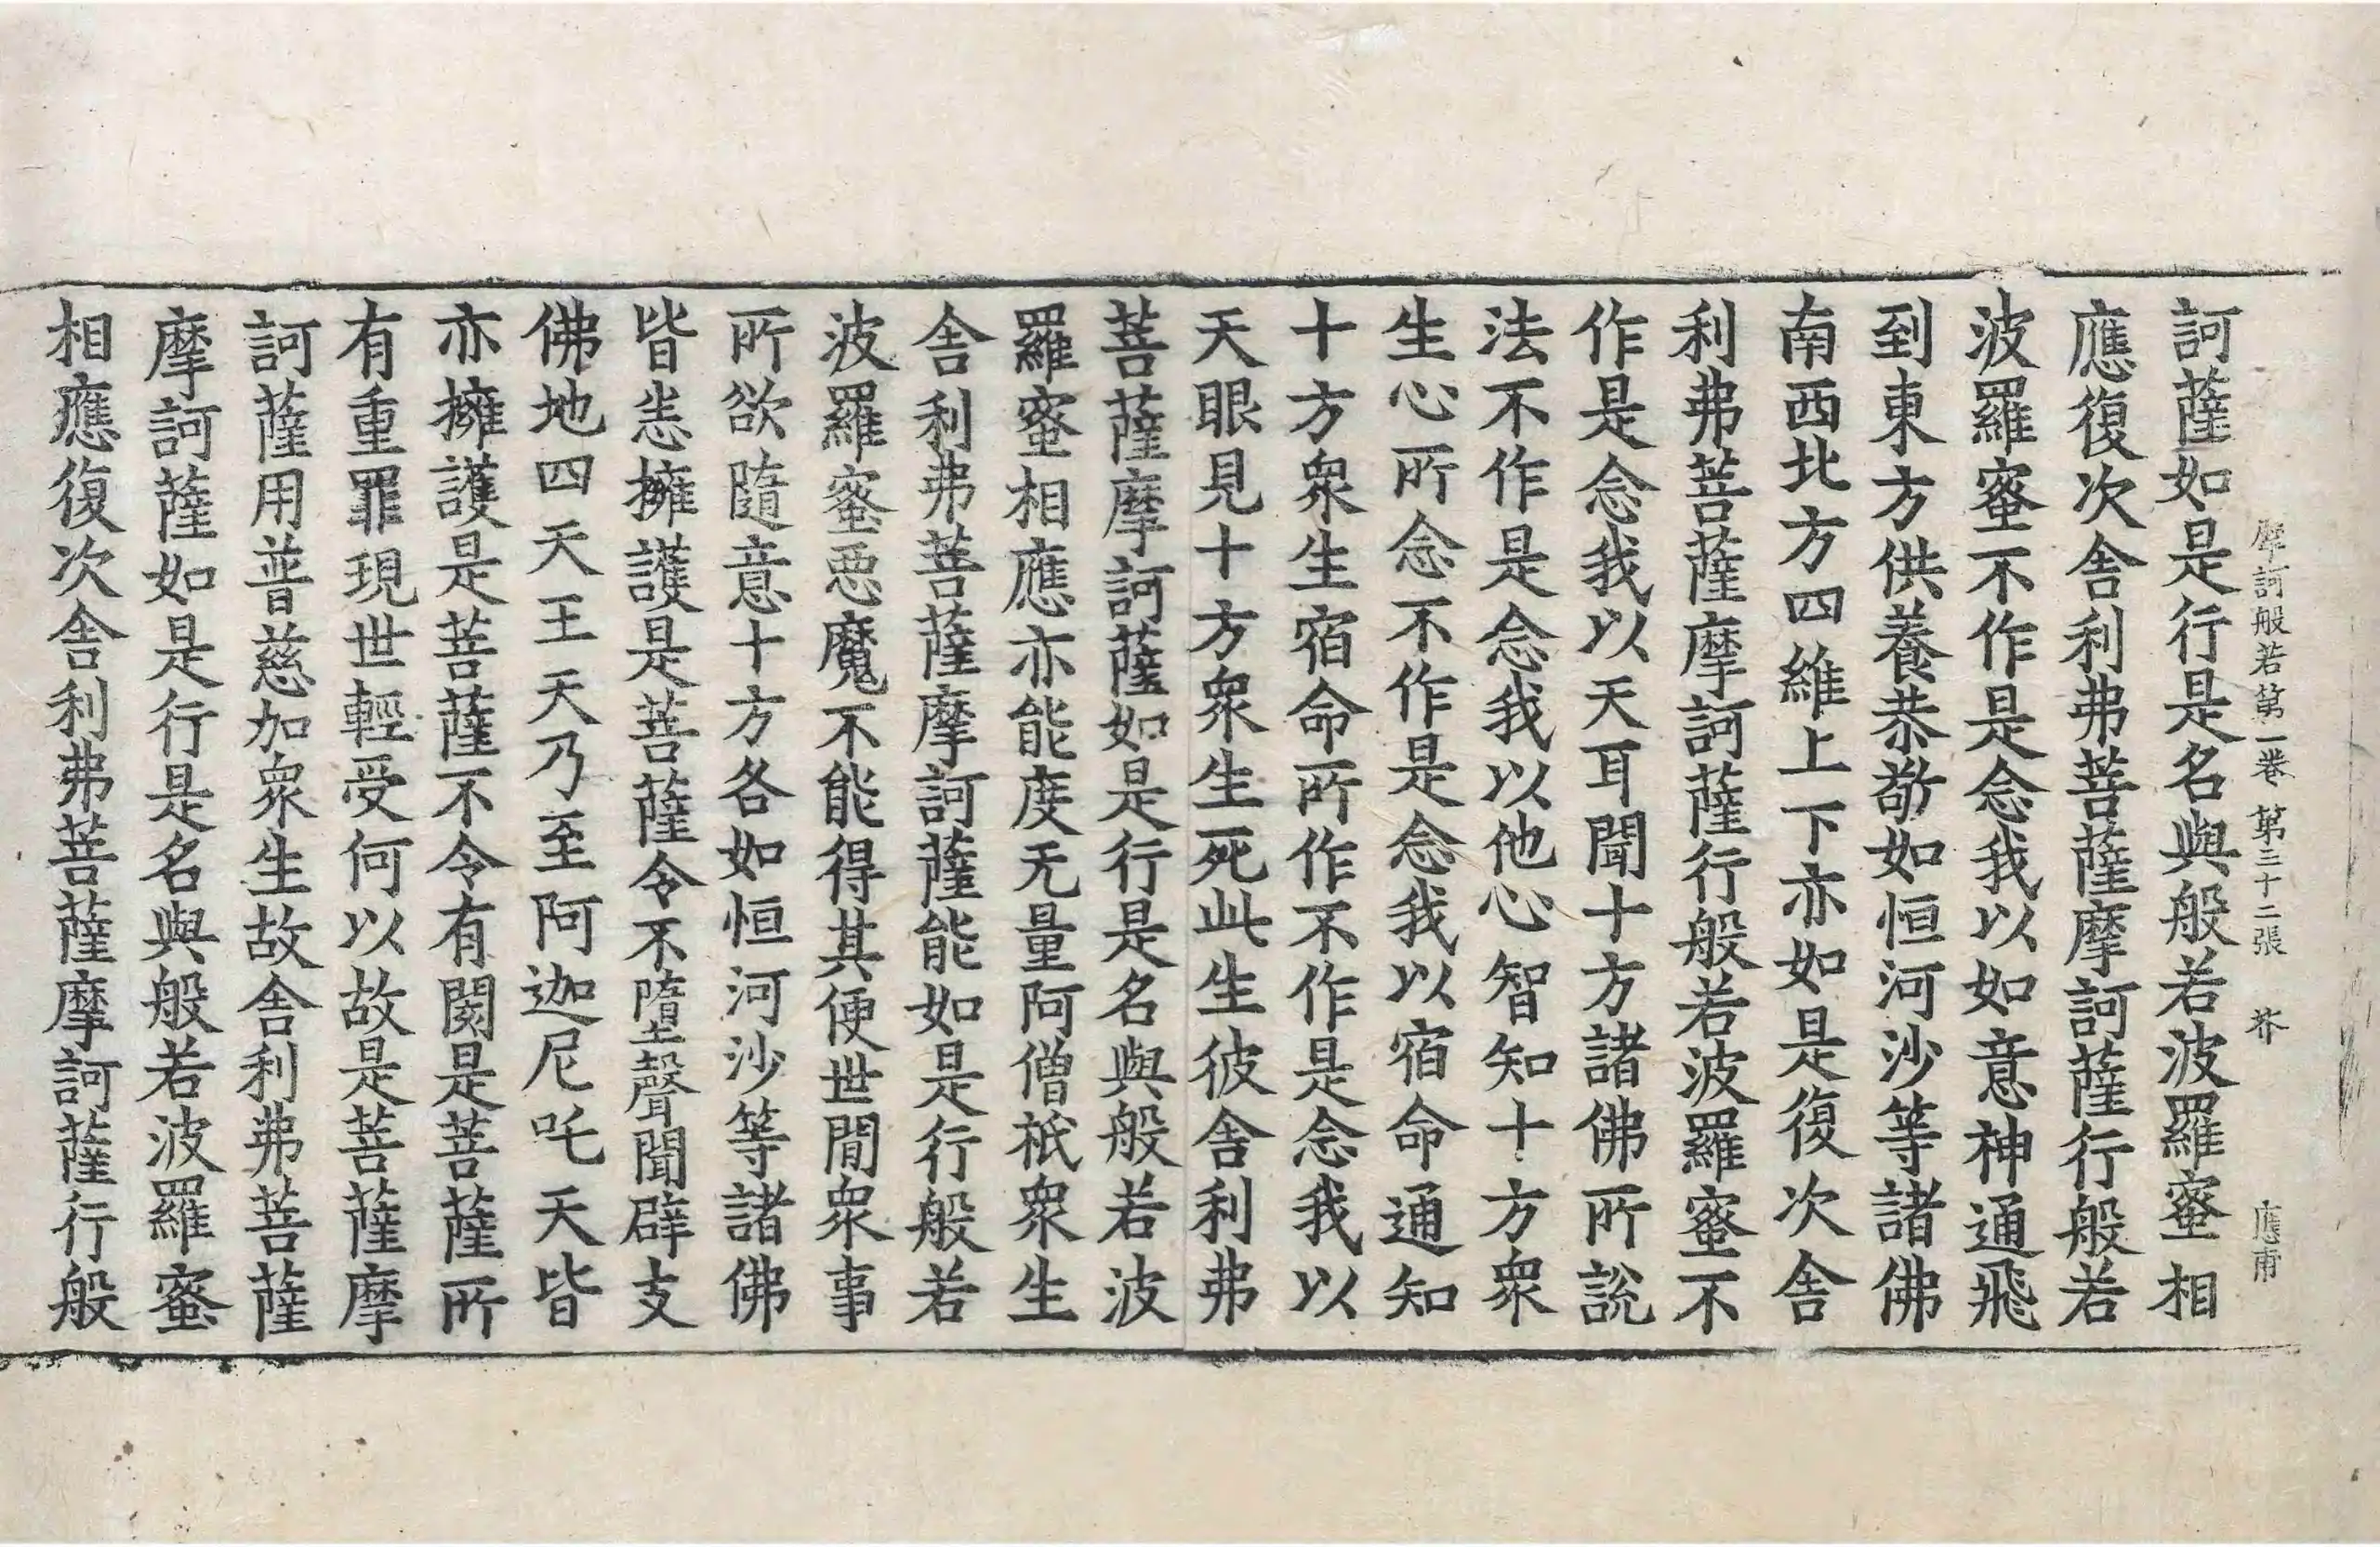 摩訶般若第一卷 第三十二張 芥 應甫
訶薩如是行是名與般若波羅蜜相
應復次舎利弗菩薩摩訶薩行般若
波羅蜜不作是念我以如意神通飛
到東方供養恭敬如恒河沙等諸佛
南西北方四維上下亦如是復次舎
利弗菩薩摩訶薩行般若波羅蜜不
作是念我以天耳聞十方諸佛所說
法不作是念我以他心智知十方衆
生心所念不作是念我以宿命通知
十方衆生宿命所作不作是念我以
天眼見十方衆生死此生彼舎利弗
菩薩摩訶薩如是行是名與般若波
羅蜜相應亦能度无量阿僧祇衆生
舎利弗菩薩摩訶薩能如是行般若
波羅蜜惡魔不能得其便世間衆事
所欲隨意十方各如恒河沙等諸佛
皆悉擁護是菩薩令不墮聲聞辟支
佛地四天王天乃至阿迦尼吒天皆
亦擁護是菩薩不令有閡是菩薩所
有重罪現世輕受何以故是菩薩摩
訶薩用普慈加衆生故舎利弗菩薩
摩訶薩如是行是名與般若波羅蜜
相應復次舎利弗菩薩摩訶薩行般